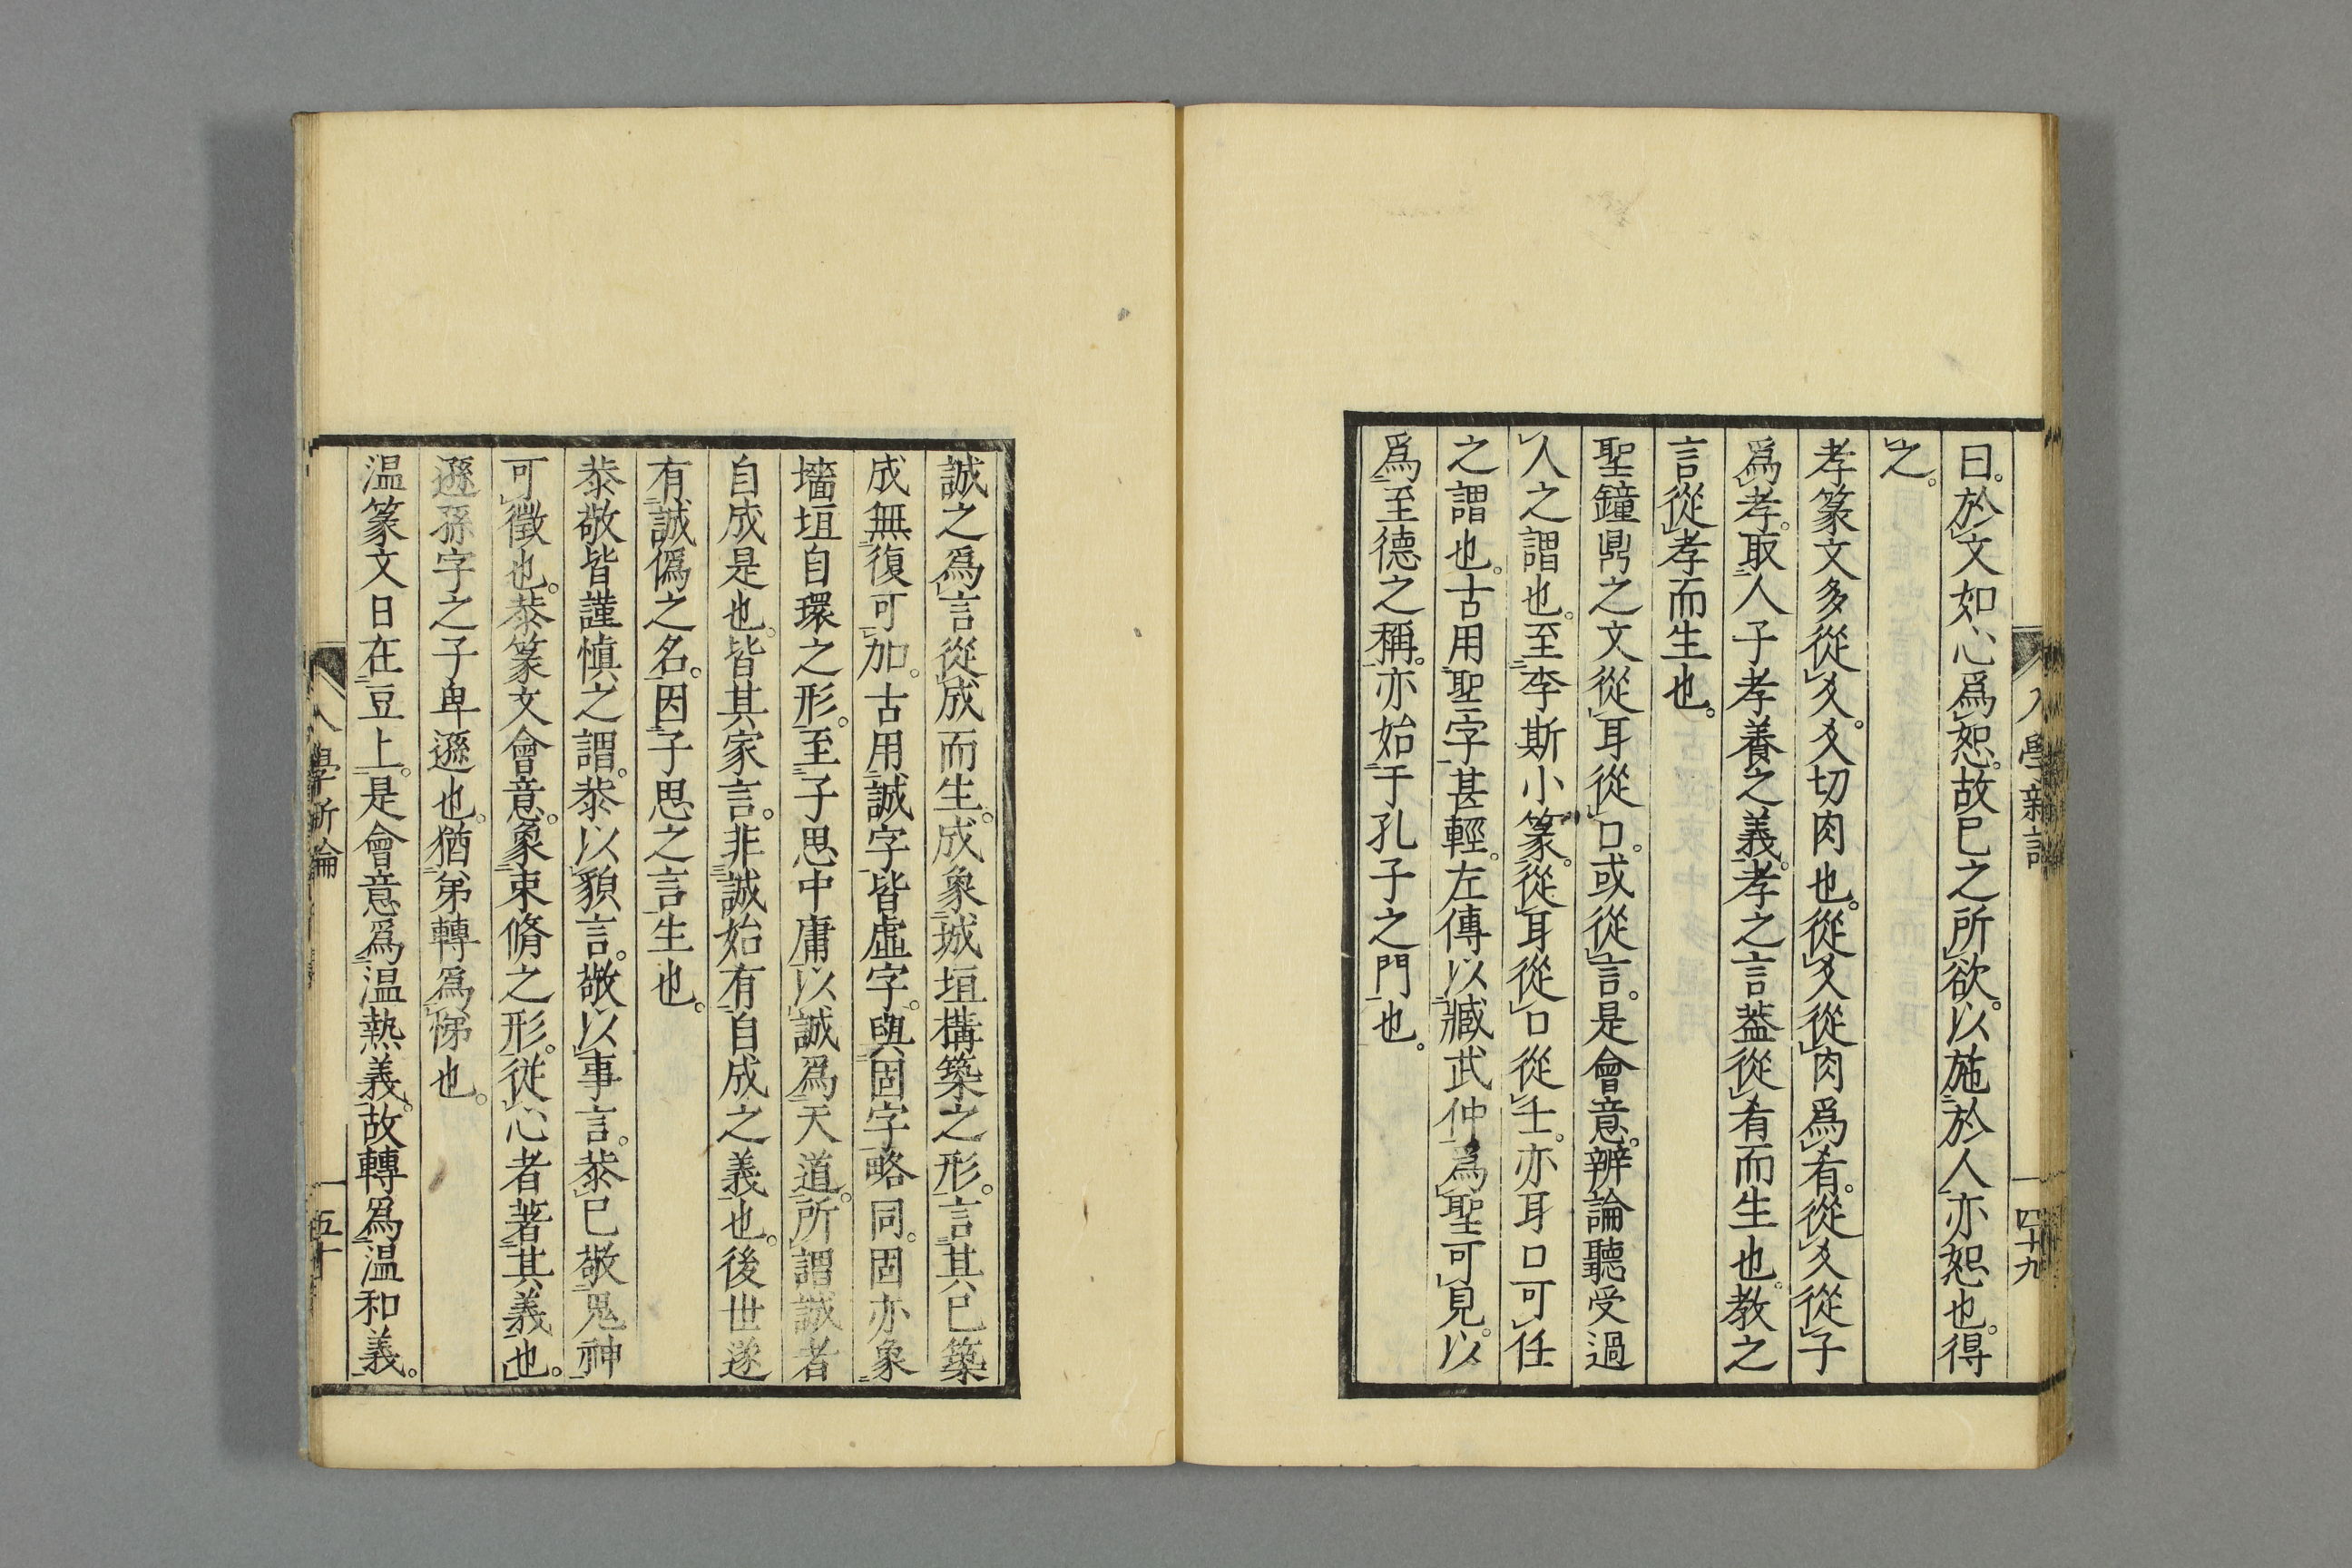 曰。於文如心爲恕。故己之所欲。以施於人亦恕也。得
之。
孝篆文多從爻。爻切肉也。從爻從肉爲肴。從爻從子
爲孝。取人子孝養之義。孝之言蓋從肴而生也。教之
言從孝而生也。
聖鐘鼎之文從耳從口。或從言。是會意。辨論聽受過
人之謂也。至李斯小篆。從耳從口從壬。亦耳口可任
之謂也。古用聖字甚輕。左傳以臧武仲爲聖可見。以
爲至德之稱。亦始于孔子之門也。
四十九
誠之爲言從成而生。成象城垣構築之形。言其已築
成無復可加。古用誠字皆虛字。與固字略同。固亦象
墻垣自環之形。至子思中庸以誠爲天道。所謂誠者
自成是也。皆其家言。非誠始有自成之義也。後世遂
有誠僞之名。因子思之言生也。
恭敬皆謹愼之謂。恭以貌言。敬以事言。恭己敬鬼神
可徵也。恭篆文會意。象束脩之形。從心者著其義也。
遜孫字之子卑遜也。猶弟轉爲悌也。
温篆文日在豆上。是會意爲温熱義。故轉爲温和義。
入學新論
五十